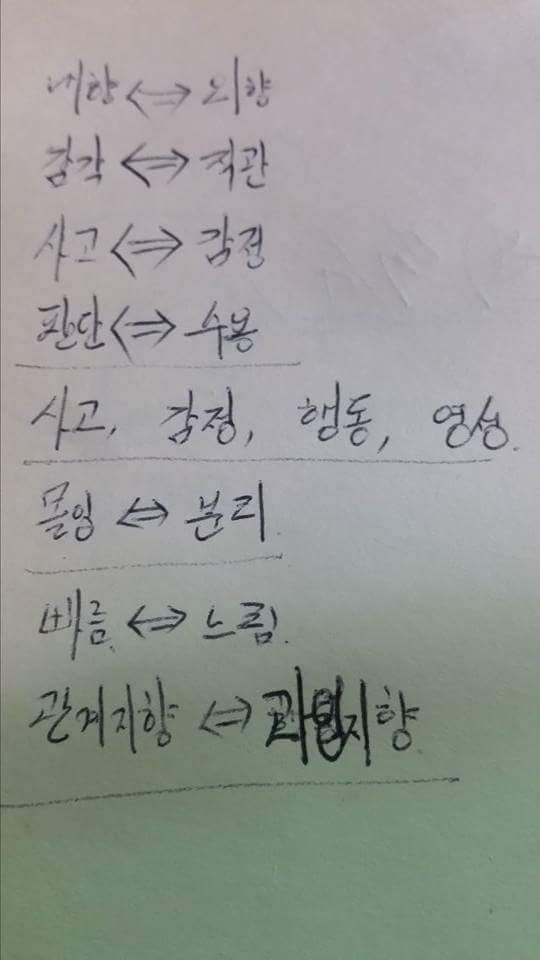 내향 <=> 외향
감각 <=> 직관
사고 <=> 감정
판단 <=> 수용
사고, 감정, 행동, 영성.
몰입 <=> 분리.
빠름. <=> 느림.
관계지향 <=> 과업지향.